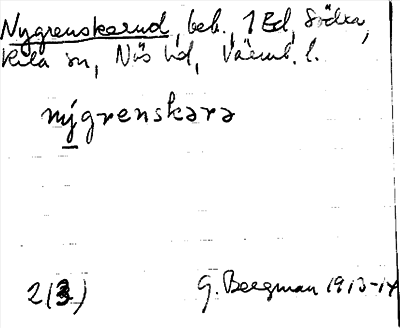 Nygrenskarud, beb., 1 Ed, Södra,
Kila sn, Näs hd, Värml. l.
nýgrenskara
2(3) G. Bergman 1913-14